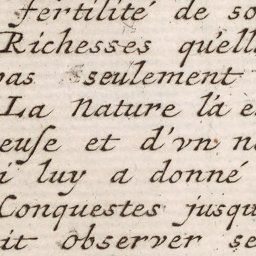 fertilité de so
Richesses qu'ell
pas seulement
La Nature l'a e
euſe et d'vn n
i luy a donné
Conquestes jusqu
it observer se